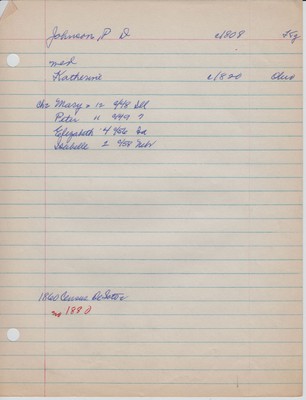 Johnson, P D c/1808
md
Katherine c/1820 Ohio
ch: Mary 12 c/48 Ill
Peter 11 c/49 ?
Elizabeth 4 c/56 Ia
Isabelle 2 c/58 Nebr
1860 Census DeSoto
1880